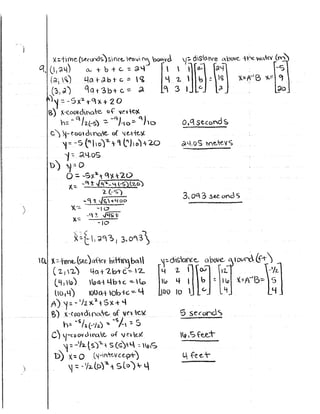 x=time (seconds) since leaving board y= distance above the water (m)
9. (1,24) a + b + c = 24 [1 1 1][a] [24] [-5]
(2,18) 4a+2b+c = 18 [4 2 1][b] = [18] X=A⁻¹B X= [9]
(3,2) 9a+3b+c = 2 [9 3 1][c] [2] [20]
A) y = -5x²+9x+20
B) x-coordinate of vertex
h= -9/2(-5) = -9/-10 = 9/10 0.9 seconds
C) y-coordinate of vertex
y = -5(9/10)²+9(9/10)+20 24.05 meters
y = 24.05
D) y=0
0 = -5x²+9x+20
x= -9±√9²-4(-5)(20)
2(-5) 3.093 seconds
x= -9±√81+400
-10
x= -9±√481
-10
x={-1.293, 3.093}
10. x=time (sec) after hitting ball y=distance above ground (ft)
(2,12) 4a+2b+c=12 [4 2 1][a] [12] [-1/2]
(4,16) 16a+4b+c=16 [16 4 1][b] = [16] X=A⁻¹B= [5]
(10,4) 100a+10b+c=4 [100 10 1][c] [4] [4]
A) y= -1/2x²+5x+4
B) x-coordinate of vertex 5 seconds
h= -5/2(-1/2) = -5/-1 = 5
C) y-coordinate of vertex 16.5 feet
y= -1/2(5)²+5(5)+4=16.5
D) x=0 (y-intercept) 4 feet
y = -1/2(0)²+5(0)+4